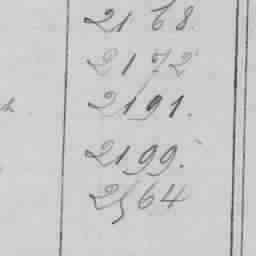 2168
2172
2191.
2199.
2564